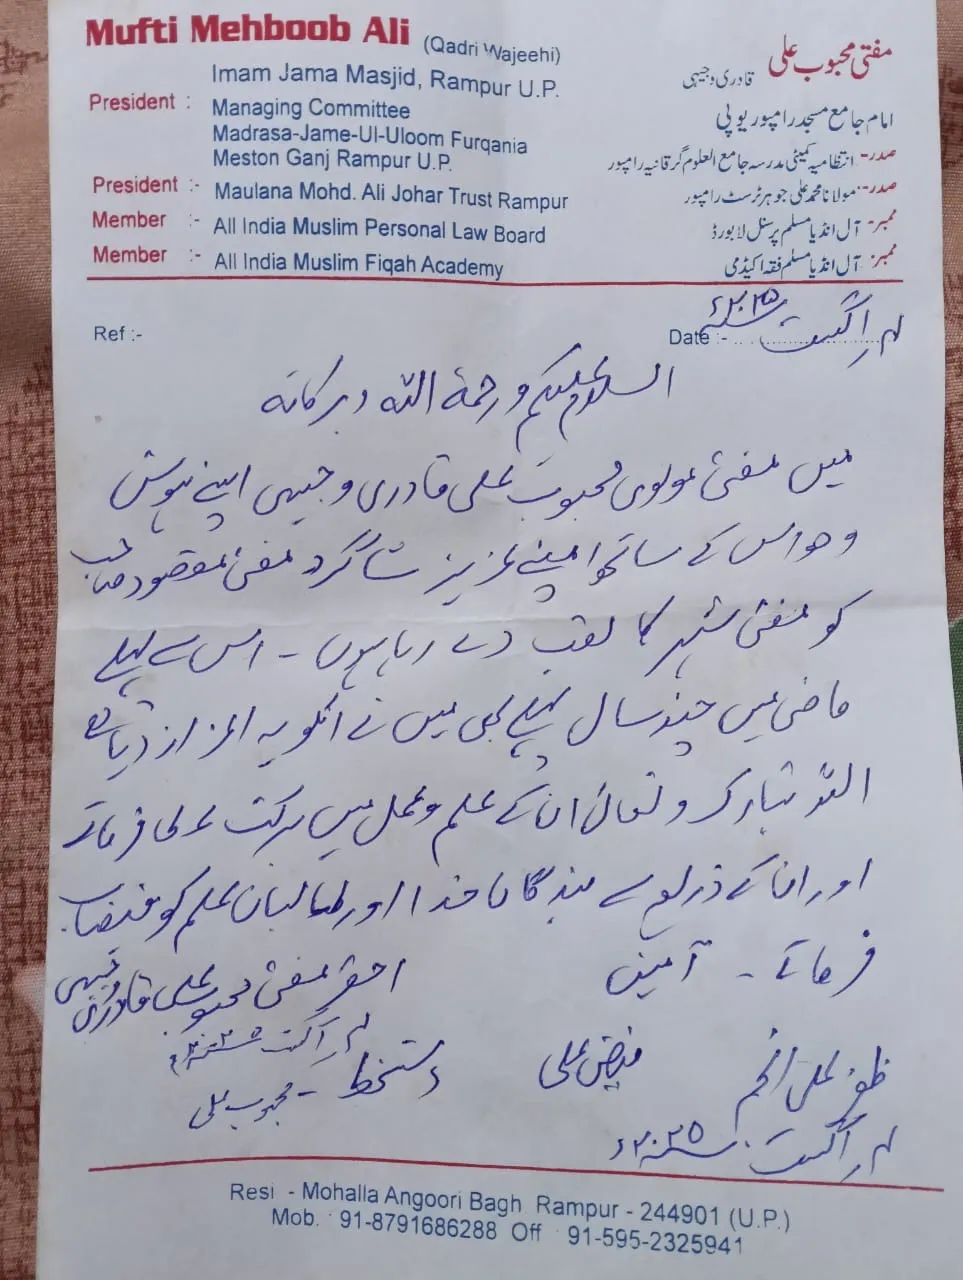 Mufti Mehboob Ali (Qadri Wajeehi)
Imam Jama Masjid, Rampur U.P.
President : Managing Committee
Madrasa-Jame-Ul-Uloom Furqania
Meston Ganj Rampur U.P.
President :- Maulana Mohd. Ali Johar Trust Rampur
Member :- All India Muslim Personal Law Board
Member :- All India Muslim Fiqah Academy
مفتی محبوب علی قادری وجیہی
امام جامع مسجد رامپور یو پی
صدر- انتظامیہ کمیٹی مدرسہ جامع العلوم گرقانیہ رامپور
صدر- مولانا محمد علی جوہر ٹرسٹ رامپور
ممبر- آل انڈیا مسلم پرسنل لا بورڈ
ممبر- آل انڈیا مسلم فقہ اکیڈمی
Ref :-
Date :- ۴ اگست ۲۰۲۵ء
السلام علیکم و رحمۃ اللہ و برکاتہ
میں مفتی مولوی محبوب علی قادری وجیہی اپنے ہوش
و حواس کے ساتھ اپنے عزیز شاگرد مفتی مقصود صاحب
کو مفتی شہر کا لقب دے رہا ہوں - اس سے پہلے
ماضی میں چند سال پہلے بھی میں نے انکو یہ اعزاز دیا ہے
اللہ تبارک و تعالیٰ ان کے علم و عمل میں برکت عطا فرمائے
اور ان کے ذریعے سے بندگان خدا اور طالبان علم کو فیضیاب
فرمائے - آمین
احقر مفتی محبوب علی قادری وجیہی
۴ اگست ۲۰۲۵ء
دستخط - محبوب علی
فیض علی
ظفر علی انجم
۴ اگست ۲۰۲۵ء
Resi - Mohalla Angoori Bagh Rampur - 244901 (U.P.)
Mob. : 91-8791686288 Off : 91-595-2325941